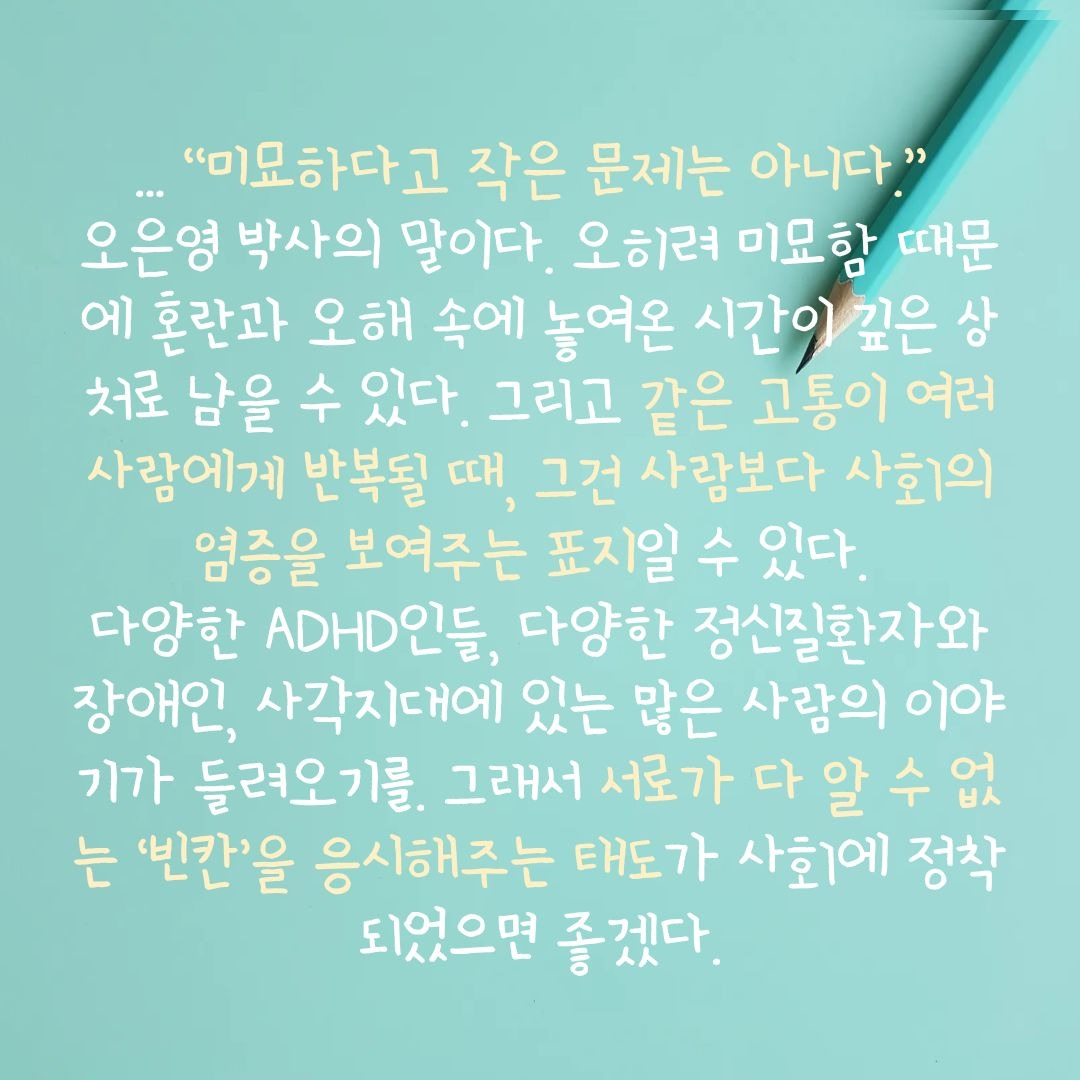 ... “미묘하다고 작은 문제는 아니다.”
오은영 박사의 말이다. 오히려 미묘함 때문
에 혼란과 오해 속에 놓여온 시간이 깊은 상
처로 남을 수 있다. 그리고 같은 고통이 여러
사람에게 반복될 때, 그건 사람보다 사회의
염증을 보여주는 표지일 수 있다.
다양한 ADHD인들, 다양한 정신질환자와
장애인, 사각지대에 있는 많은 사람의 이야
기가 들려오기를. 그래서 서로가 다 알 수 없
는 ‘빈칸’을 응시해주는 태도가 사회에 정착
되었으면 좋겠다.